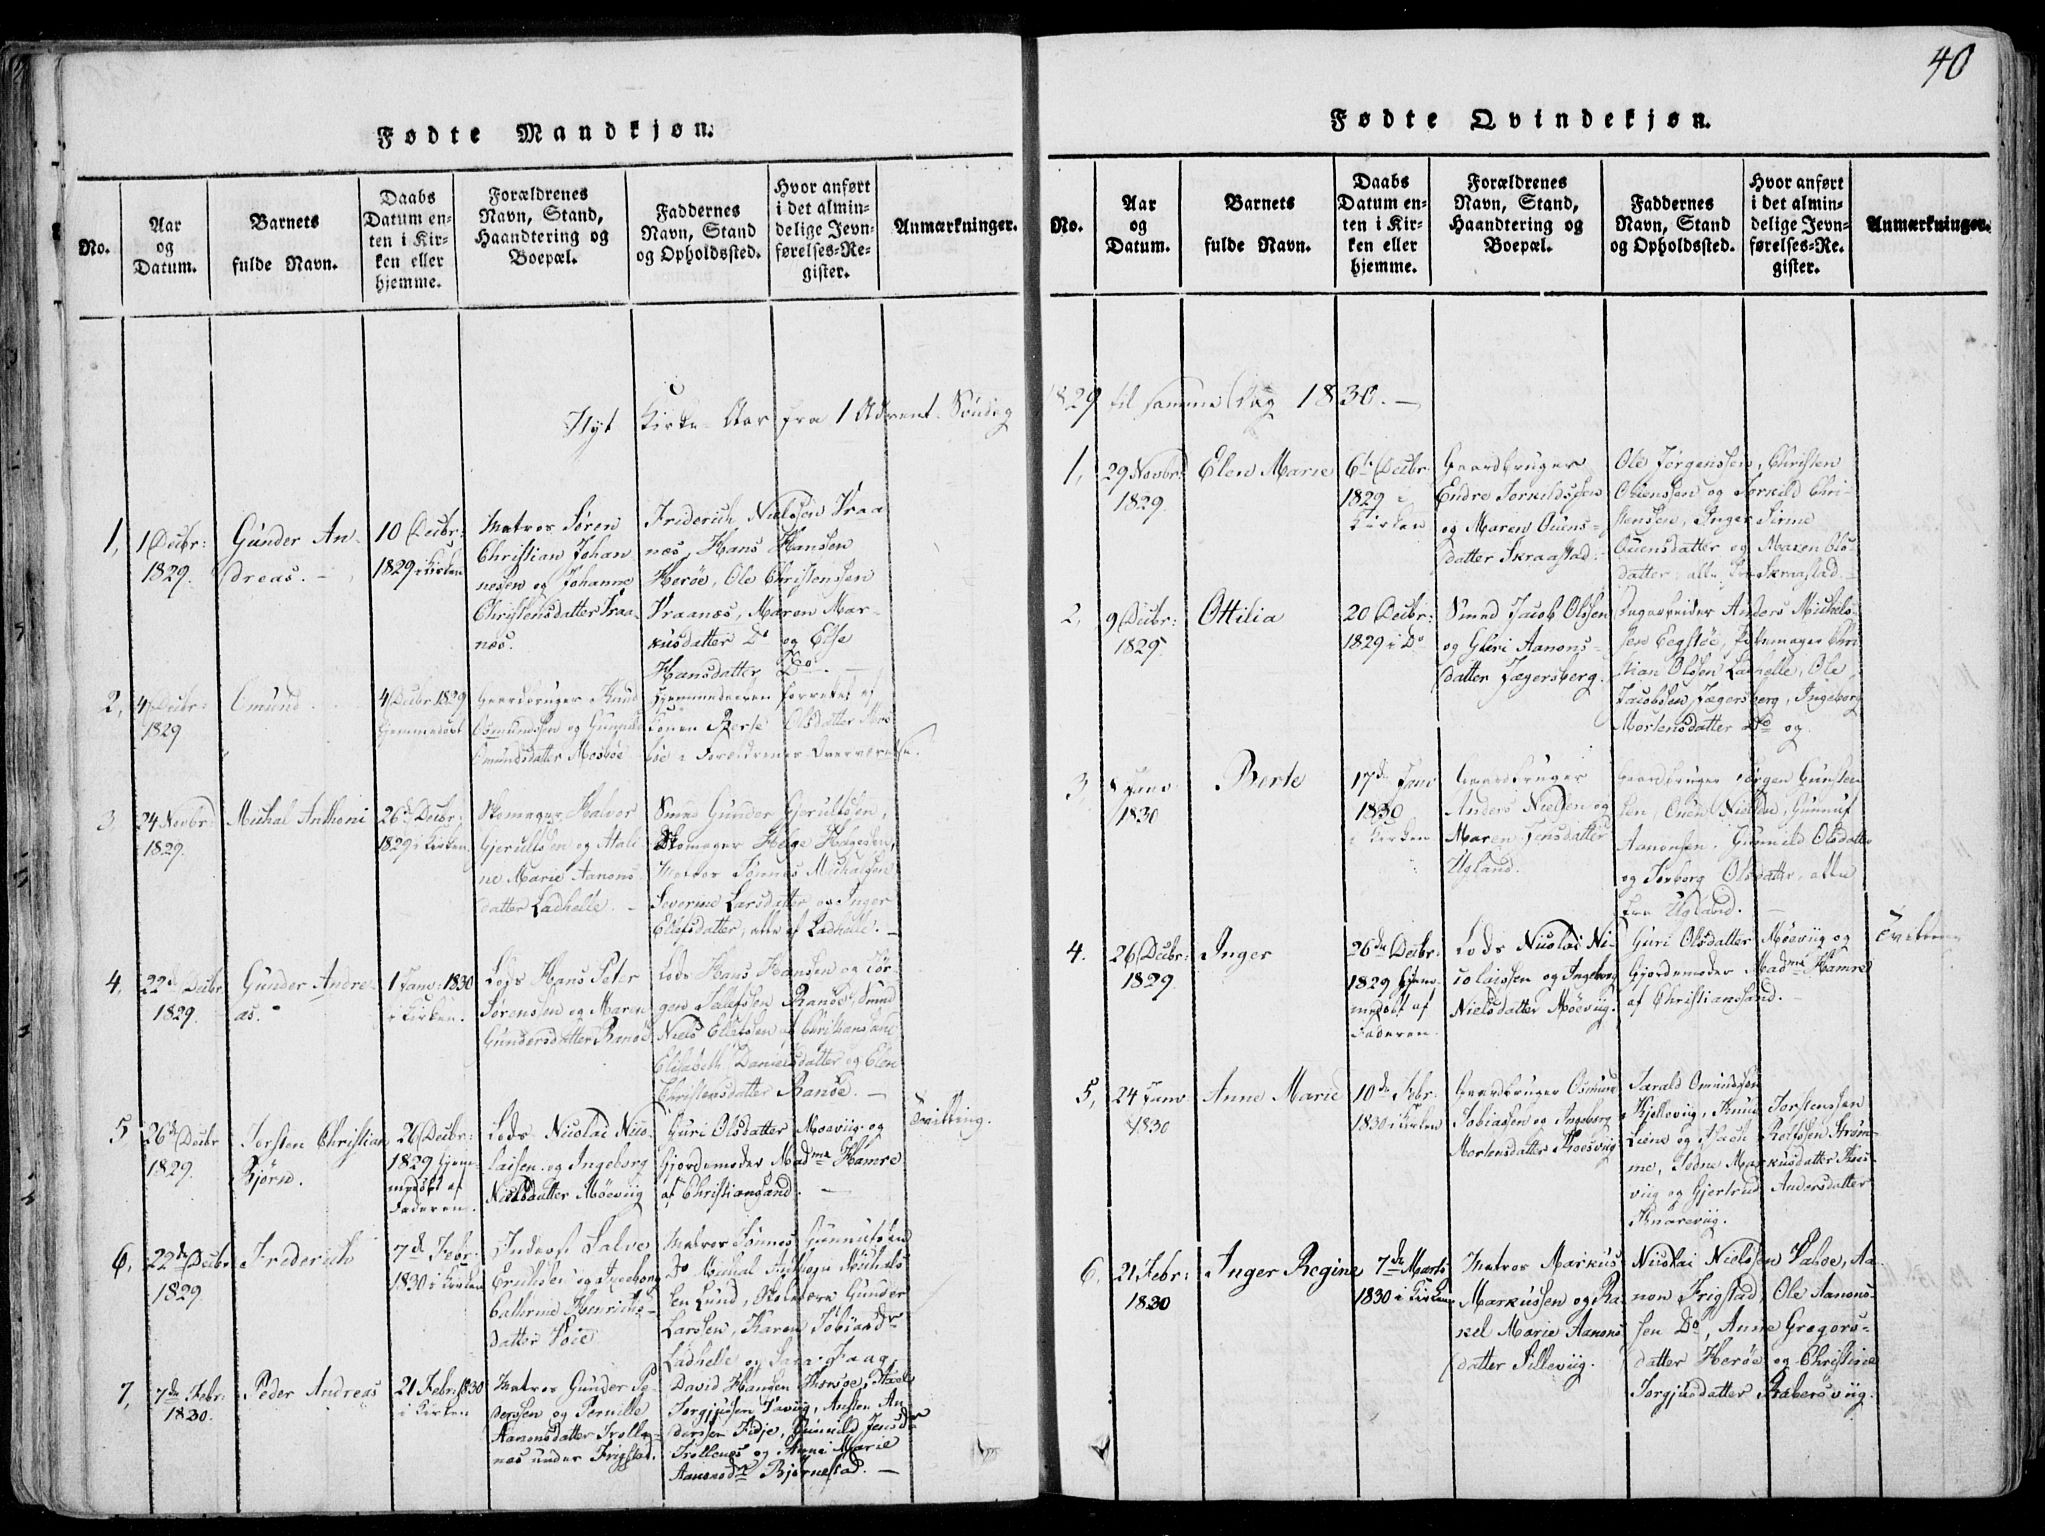 Fødte Mandkjøn.
No.
Aar
og
Datum.
Barnets
fulde Navn.
Daabs
Datum en-
ten i Kir-
ken eller
hjemme.
Forældrenes
Navn, Stand,
Haandtering og
Boepæl.
Faddernes
Navn, Stand
og Opholdssted.
Hvor anført
i det almin-
delige Jevn-
førelses-Re-
gister.
Anmærkninger.
Nyt Kirke-Aar fra 1 Advent-Søndag
1,
1 Decbr:
1829.
Gunder An-
dreas. -
10 Decbr:
1829 i Kirken
Matros Søren
Christian Johan
nesen og Johanne
Christensdatter Kraa-
næs.
Friderich Nielssen Kraa
næs, Hans Hansen
Herøe, Ole Christensen
Kraanæs, Maren Mar-
kusdatter Do og Else
Hansdatter Do. -
2,
4 Decbr:
1829
Omund.
4 Decbr 1829
Hjemmedøbt
Gaardbruger Knud
Osmundssen og Gunnild
Omundsdatter Mosbøe
Hjemmedaaben forrettet af
Konen Berte Olsdatter Mos
bøe i Forældrenes Overværelse.
3,
24 Novbr:
1829.
Michal Anthoni
26de Decbr:
1829 i Kirken
Skomager Halvor
Gjerultsen og Atali-
ne Marie Aanons
datter Ladhelle. -
Smed Gunder Gjerultsen,
Skomager Helge Helgesen,
Matros Tønnes Michalsen
Severine Larsdatter og Inger
Ellefsdatter, alle af Ladhelle. -
4,
22de Decbr
1829.
Gunder Andre-
as.
1 Janv: 1830
i Kirken.
Lods Hans Peter
Sørenssen og Maren
Gundersdatter Randø
Lods Hans Hanssen og Jør-
gen Tallefsen Randøe, Smed
Niels Ellefsen af Christiansand
Elisabeth Danielsdatter og Elen
Christensdatter Randøe. -
5
26de Decbr
1829.
Torsten Christian
Bjørn.
26 Decbr:
1829 hjem-
medøbt af
Faderen.
Lods Nicolai Nico-
laisen og Ingeborg
Nielsdatter Møeviig
Guri Olsdatter Møeviig og
Gjordemoder Madme Hamre
af Christiansand. -
Tvilling.
6,
22de Decbr
1829
Friderich
7de Febr:
1830 i Kirken
Inderst Salve
Erichsen og Ingeborg
Cathrine Henrichs-
datter Voie
Matros Tønnes Gunnufsen
Do Michal Anthon Michals
sen Lund, Skolelærer Gunder
Larssen, Karen Tobiasdr
Ladhelle og Sara Faag.
7,
7de Febr:
1830.
Peder Andreas
21 Febr: 1830
i Kirken
Matros Gunder Pe-
dersen og Pernille
Aanonsdatter Trolle-
næs under Frigstad.
David Hansen
Torgjussen Vaviig, Austen An
dersen Fidje, Gunnild Jensdr
Trollenes og Anne Marie
Aanonsdr Bjørnestad. -
40
Fødte Qvindekjøn.
No.
Aar
og
Datum.
Barnets
fulde Navn.
Daabs
Datum en-
ten i Kir-
ken eller
hjemme.
Forældrenes
Navn, Stand,
Haandtering og
Boepæl.
Faddernes
Navn, Stand
og Opholdssted.
Hvor anført
i det almin-
delige Jevn-
førelses-Re-
gister.
Anmærkninger.
1829 til samme Dag 1830. -
1,
29 Novbr:
1829.
Elen Marie
6te Decbr:
1829 i
Kirken
Gaardbruger
Endre Torkildssen
og Maren Ouens-
datter Skraastad.
Ole Jørgenssen, Christen
Ouenssen og Torkild Chri-
stensen, Inger Sirine
Ouensdatter og Maren Ols-
datter, alle fra Skraastad. -
2,
9 Decbr:
1829.
Ottilia
20 Decbr:
1829 i Do
Smed Jacob Olssen
og Guri Aanons-
datter Jægersberg.
Dagarbeider Anders Michels-
sen Eegstøe, Chri-
stian Olssen Ladhelle, Ole
Jacobssen Jægersberg, Ingeborg
Mortensdatter Do og
3
8 Janv
1830
Berte
17de Janv
1830
i Kirken
Gaardbruger
Anders Nielsen og
Maren Jensdatter
Ugland.
Gaardbruger Jørgen
sen, Ouen Nielsen, Gunnuf
Aanonsen, Gunnild Olsdatter
og Torborg Olsdatter, alle
fra Ugland. -
4.
26 Decbr:
1829.
Inger
26de Decbr:
1829 Hjem-
medøbt af
Faderen.
Lods Nicolai Ni-
colaissen og Ingeborg
Nielsdatter Møeviig.
Guri Olsdatter Møeviig og
Gjordemoder Madme Hamre
af Christiansand. -
5,
24 Janv
1830
Anne Marie
10de Febr:
1830 i Kirken
Gaardbruger Osmund
Tobiassen og Ingeborg
Mortensdatter Kosviig
Tarald Omundssen
Kjelleviig, Knud Torstenssen
Liene og Rolfssen Strøm-
me, Mar-kusdatter Kos-
viig og Gjertrud Andersdatter
Knareviig.
6.
21 Febr:
1830
Inger Regine
7de Marts
1830 i Kirken
Matros Markus
Markussen og Ra-
kel Marie Aanons
datter Silleviig.
Nicolai Nielssen Vahøe, Aa-
non Frigstad, Ole Aanons-
sen Do, Anne Gregers-
datter Herøe og Christine
Torgjusdatter Rabersviig.